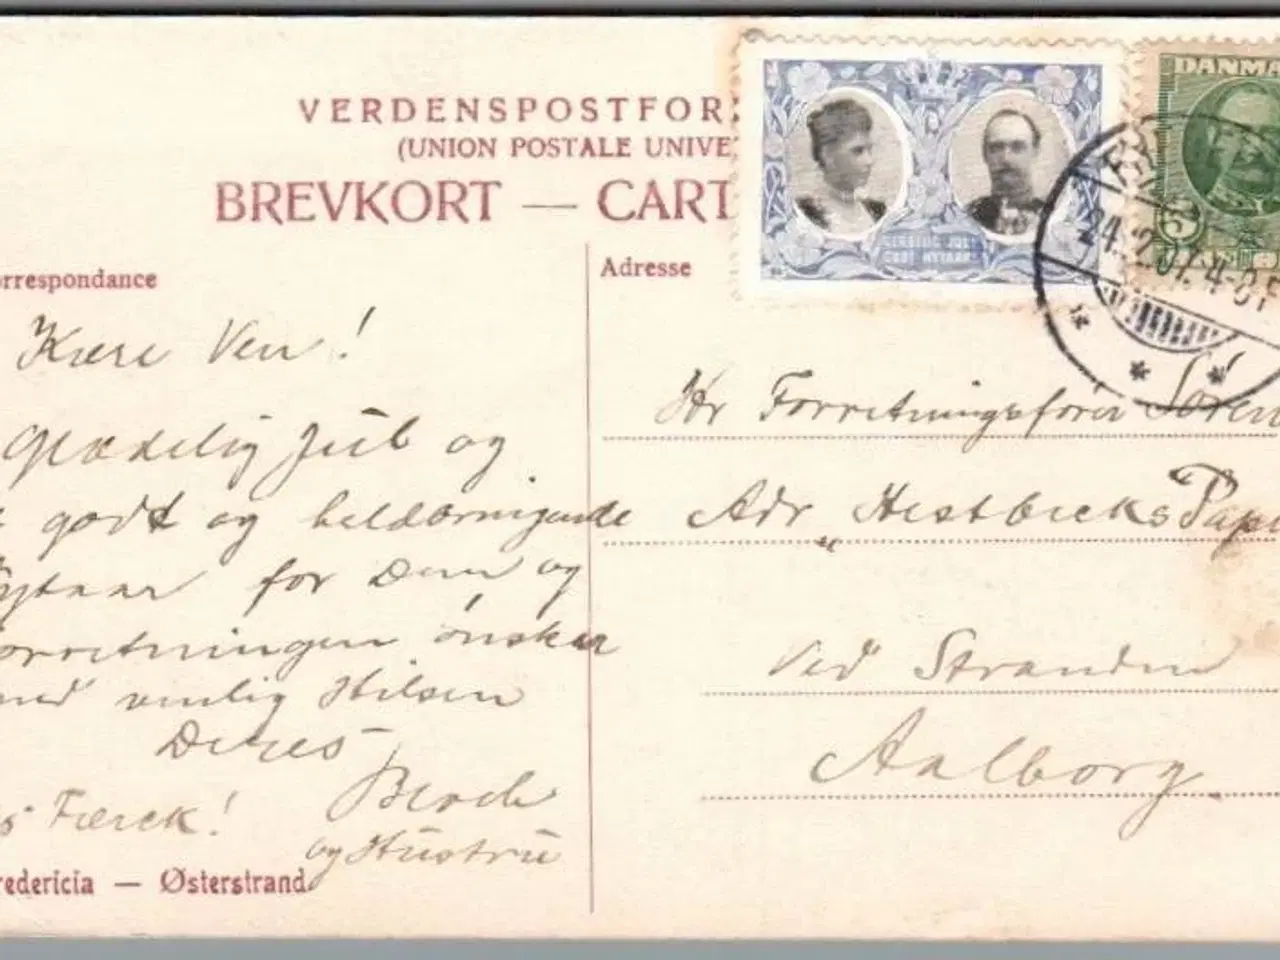 VERDENSPOSTFOR
(UNION POSTALE UNIVE
BREVKORT — CART
orrespondance
Adresse
DANMA
5
24.12.07. 4-5 F
GLÆDELIG JUL
GODT NYTAAR
Kære Ven!
Glædelig Jul og
godt og velsignende
Nytaar for Dem og
orretningen ønsker
med venlig Hilsen
Deres
Bloch
og Hustru
Færck!
redericia — Østerstrand
Hr Forretningsfører Sören
Adr Hestbecks Papi
Ved Stranden
Aalborg